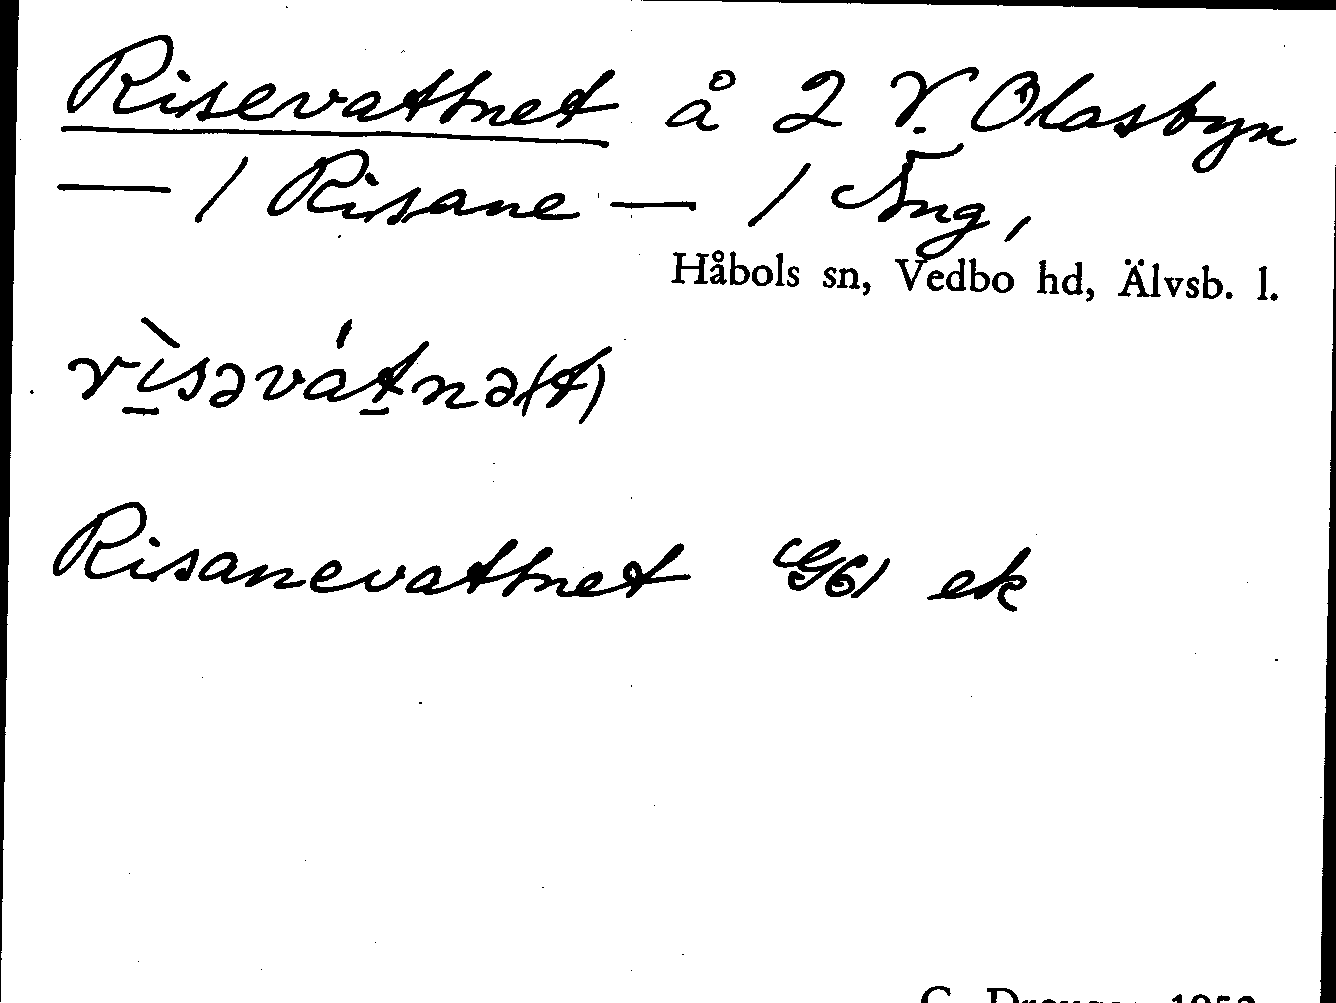 Risevattnet å 2 V. Olasbyn
— 1 Risane — 1 Äng,
Håbols sn, Vedbo hd, Älvsb. l.
rìsəvátnə(t)
Risanevattnet G61 ek